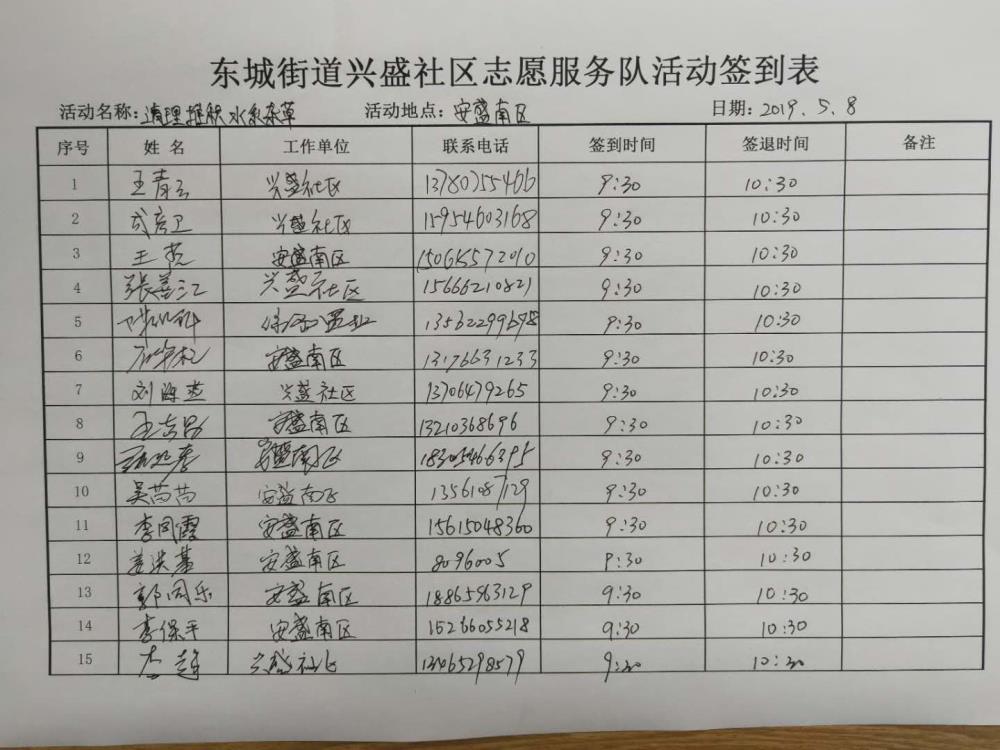 东城街道兴盛社区志愿服务队活动签到表
活动名称:清理堆积水系杂草 活动地点:安盛南区 日期:2019.5.8
序号 姓名 工作单位 联系电话 签到时间 签退时间 备注
1 王青云 兴盛社区 13780755466 9:30 10:30
2 兴盛社区 15954603168 9:30 10:30
3 王亮 安盛南区 15066572010 9:30 10:30
4 張善江 兴盛社区 15666210821 9:30 10:30
5 13562299698 9:30 10:30
6 安盛南区 13176631233 9:30 10:30
7 刘海燕 兴盛社区 13706479265 9:30 10:30
8 王志昌 安盛南区 13210368696 9:30 10:30
9 安盛南区 18305466395 9:30 10:30
10 吴芮芮 安盛南区 13561087129 9:30 10:30
11 李同霞 安盛南区 15615048360 9:30 10:30
12 姜洪基 安盛南区 8096005 9:30 10:30
13 郭同乐 安盛南区 18865463129 9:30 10:30
14 李保平 安盛南区 15266055218 9:30 10:30
15 李超 兴盛社区 13065298579 9:30 10:30